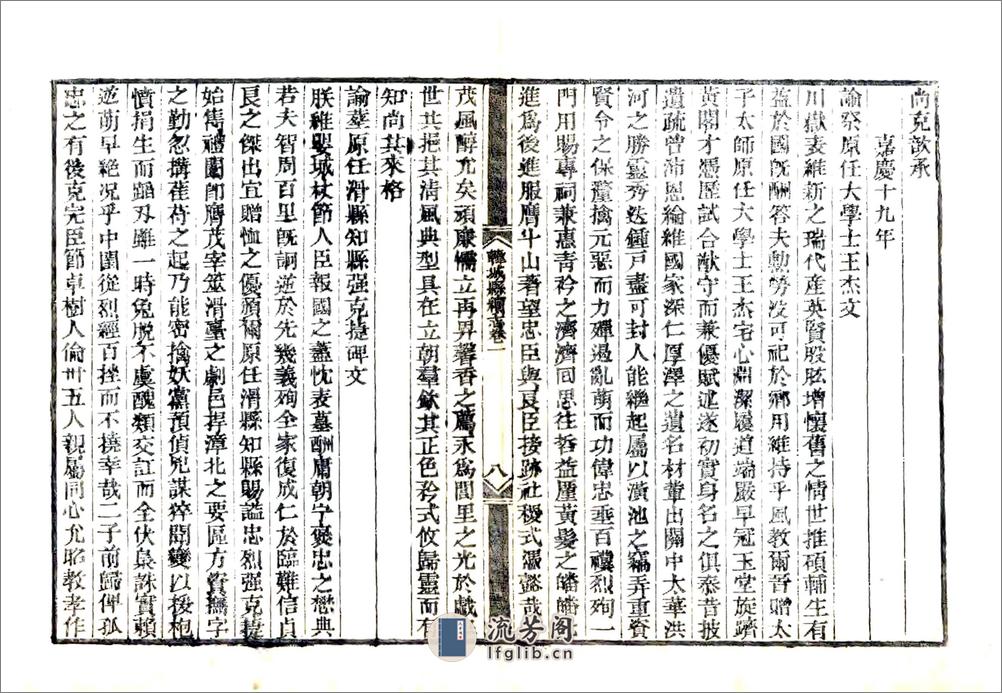 尚克歆承
嘉慶十九年
諭祭原任大學士王杰文
川嶽表維新之瑞代產英賢股肱增懷舊之情世推碩輔生有
益於國旣酬答夫勳勞沒可祀於鄉用維持乎風教爾晉贈太
子太師原任大學士王杰宅心淵潔履道端嚴早冠玉堂旋躋
黃閣才憑歷試合猷守而兼優賦述遂初實身名之俱泰昔披
遺疏曾沛恩綸維國家深仁厚澤之遺名材輩出關中太華洪
河之勝靈秀迭鍾戸盡可封人能繼起屬以潢池之竊弄重資
賢令之保釐擒元惡而力殫遏亂萌而功偉忠垂百禩烈殉一
門用賜專祠兼惠青衿之濟濟同思往哲益厪黃髮之皤皤
進爲後進服膺斗山著望忠臣與良臣接跡社稷式憑懿哉
韓城縣續志卷一
八
茂風醇允矣頑廉懦立再昇馨香之薦永爲閭里之光於戲
世共挹其清風典型具在立朝羣欽其正色矜式攸歸靈而有
知尚其來格
諭葬原任滑縣知縣强克捷碑文
朕維嬰城杖節人臣報國之藎忱表墓酬庸朝宁褒忠之懋典
若夫智周百里旣詗逆於先幾義殉全家復成仁於臨難信貞
良之傑出宜贈恤之優頒爾原任滑縣知縣賜謚忠烈强克捷
始雋禮闈卽膺茂宰筮滑臺之劇邑捍漳北之要區方資撫字
之勤忽搆萑苻之起乃能密擒妖黨預偵兇謀猝聞變以援枹
憤捐生而蹈刃雖一時兔脫不虞醜類交訌而全伏梟誅實賴
逆萌早絶况乎中闈從烈經百挫而不撓幸哉二子前歸俾孤
忠之有後克完臣節卓樹人倫卅五人親屬同心允昭教孝作
流芳閣
lfglib.cn